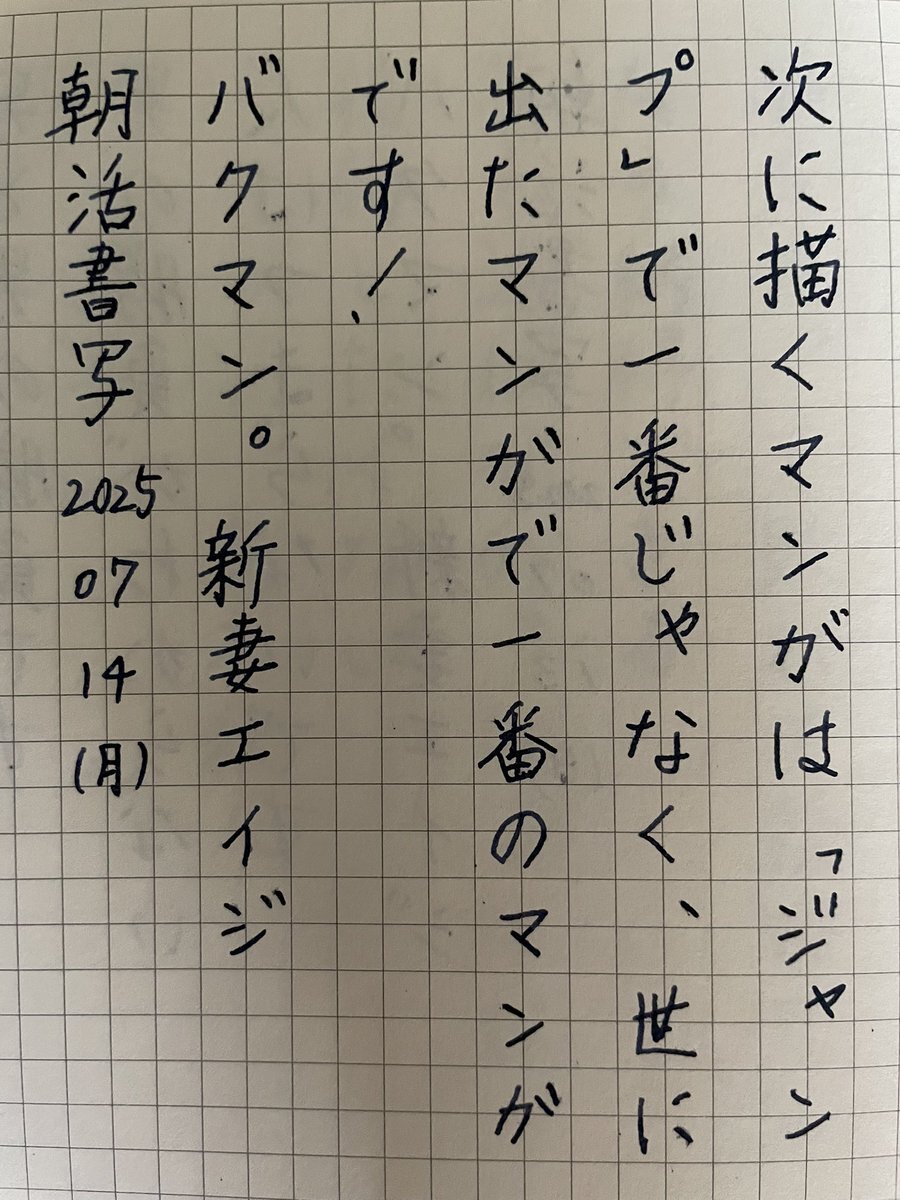 次に描くマンガは「ジャン
プ」で一番じゃなく、世に
出たマンガで一番のマンガ
です!
バクマン。新妻エイジ
朝活書写 2025 07 14 (月)